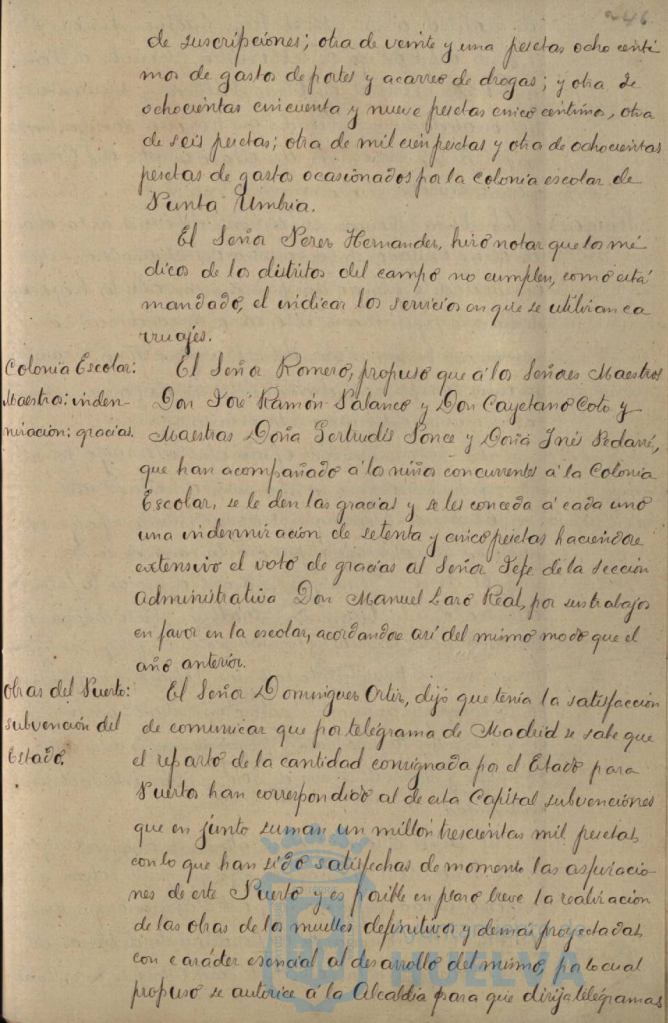 246
de suscripciones; otra de veinte y una pesetas ocho centi
mos de gastos de portes y acarreo de drogas; y otra de
ochocientas cincuenta y nueve pesetas cinco centimos, otra
de seis pesetas; otra de mil cien pesetas y otra de ochocientas
pesetas de gastos ocasionados por la colonia escolar de
Punta Umbria.
El Señor Perez Hernandez, hizo notar que los mé
dicos de los distritos del campo no cumplen, como está
mandado, el indicar los servicios en que se utilizan ca
rruajes.
Colonia Escolar:
Maestros: indem-
nización: gracias.
El Señor Romero, propuso que á los Señores Maestros
Don José Ramón Palanco y Don Cayetano Coto y
Maestras Doña Gertrudis Ponce y Doña Inés
que han acompañado á los niños concurrentes á la Colonia
Escolar, se le den las gracias y se les conceda á cada uno
una indemnización de setenta y cinco pesetas haciendose
extensivo el voto de gracias al Señor Jefe de la Sección
administrativa Don Manuel Real, por sus trabajos
en favor en la escolar, acordandose así del mismo modo que el
año anterior.
Obras del Puerto:
subvención del
Estado.
El Señor Dominguez Ortiz, dijó que tenía la satisfacción
de comunicar que por telégrama de Madrid se sabe que
el reparto de la cantidad consignada por el Estado para
Puertos han correspondido al de esta Capital subvenciones
que en junto suman un millón trescientas mil pesetas,
con lo que han sido satisfechas de momento las aspiracio-
nes de este Puerto y es posible en plazo breve la realización
de las obras de los muelles definitivos y demás proyectadas,
con carácter esencial al desarrollo del mismo, por lo cual
propuso se autorice á la Alcaldia para que dirija telégramas
HUELVA